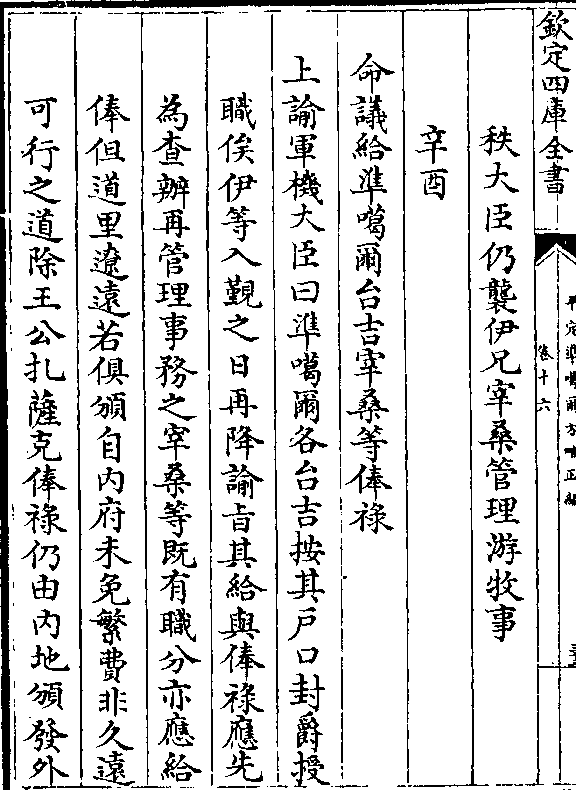 欽定四庫全書
平定準噶爾方略正編
卷十六
秩大臣仍襲伊兄宰桑管理游牧事
辛酉
命議給準噶爾台吉宰桑等俸祿
上諭軍機大臣曰準噶爾各台吉按其戶口封爵授
職俟伊等入覲之日再降諭旨其給與俸祿應先
為查辦再管理事務之宰桑等既有職分亦應給
俸但道里遼遠若俱頒自内府未免繁費非久遠
可行之道除王公扎薩克俸祿仍由内地頒發外